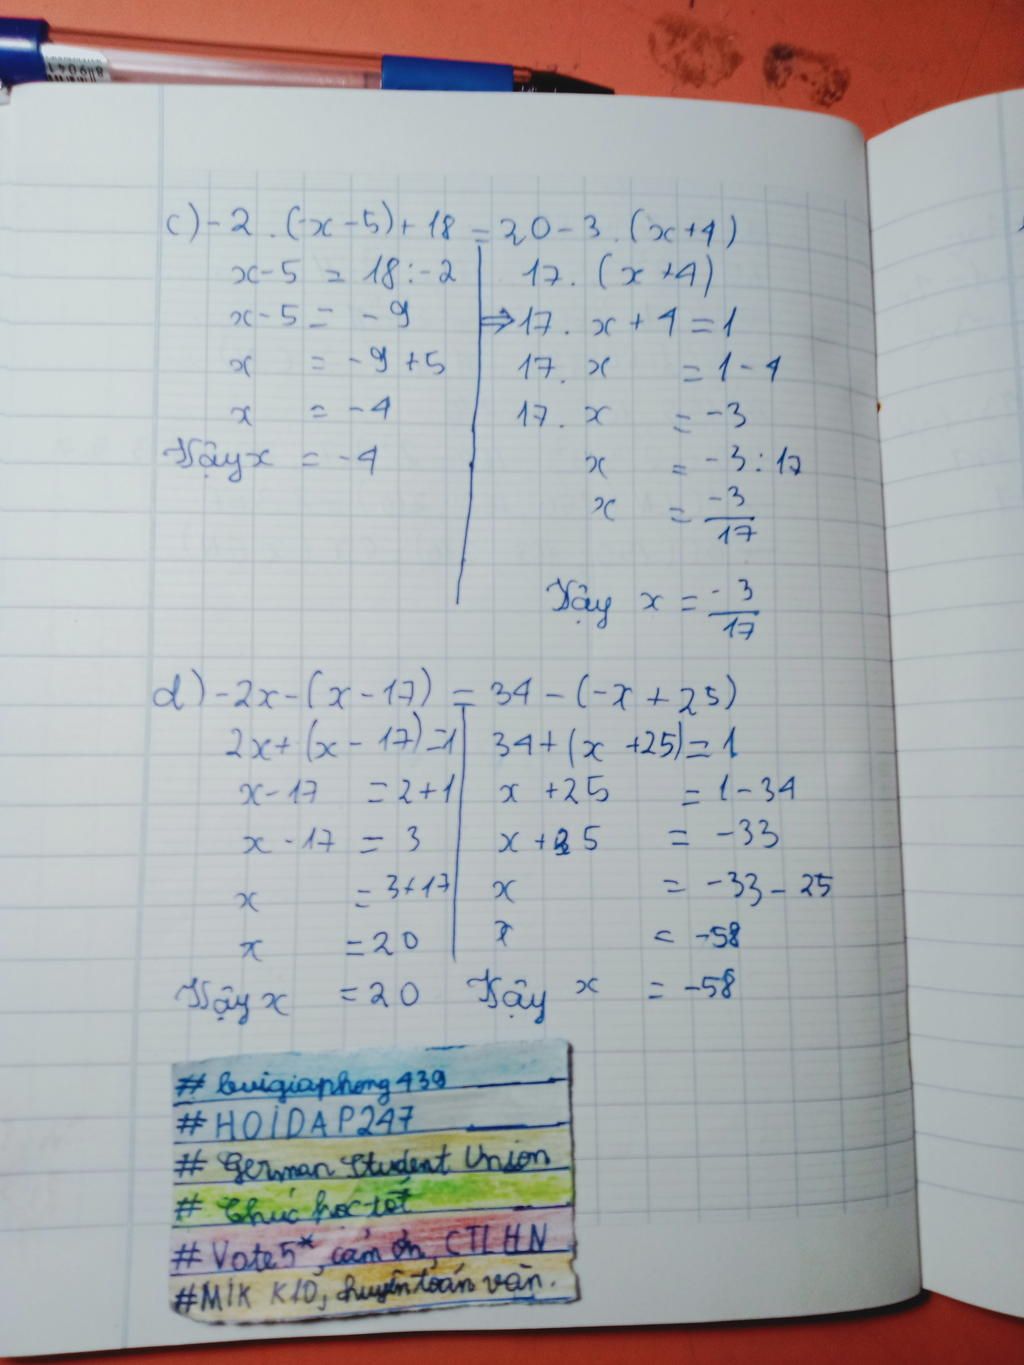 c) -2 . (-x-5) + 18 = 20 - 3 . (x+4)
x-5 = 18:-2
x-5 = -9
x = -9+5
x = -4
Vậy x = -4
17. (x+4)
⇒ 17. x + 4 = 1
17. x = 1-4
17. x = -3
x = -3:17
x = -3/17
Vậy x = -3/17
d) -2x-(x-17) = 34-(-x+25)
2x+(x-17)=1
x-17 = 2+1
x-17 = 3
x = 3+17
x = 20
Vậy x = 20
34+(x+25)=1
x+25 = 1-34
x+25 = -33
x = -33-25
x = -58
Vậy x = -58
# buigiaphong439
# HOIDAP247
# German Student Union
# Chúc học tốt
# Vote 5*, cảm ơn, CTLHN
#MIK K10, chuyên toán văn.